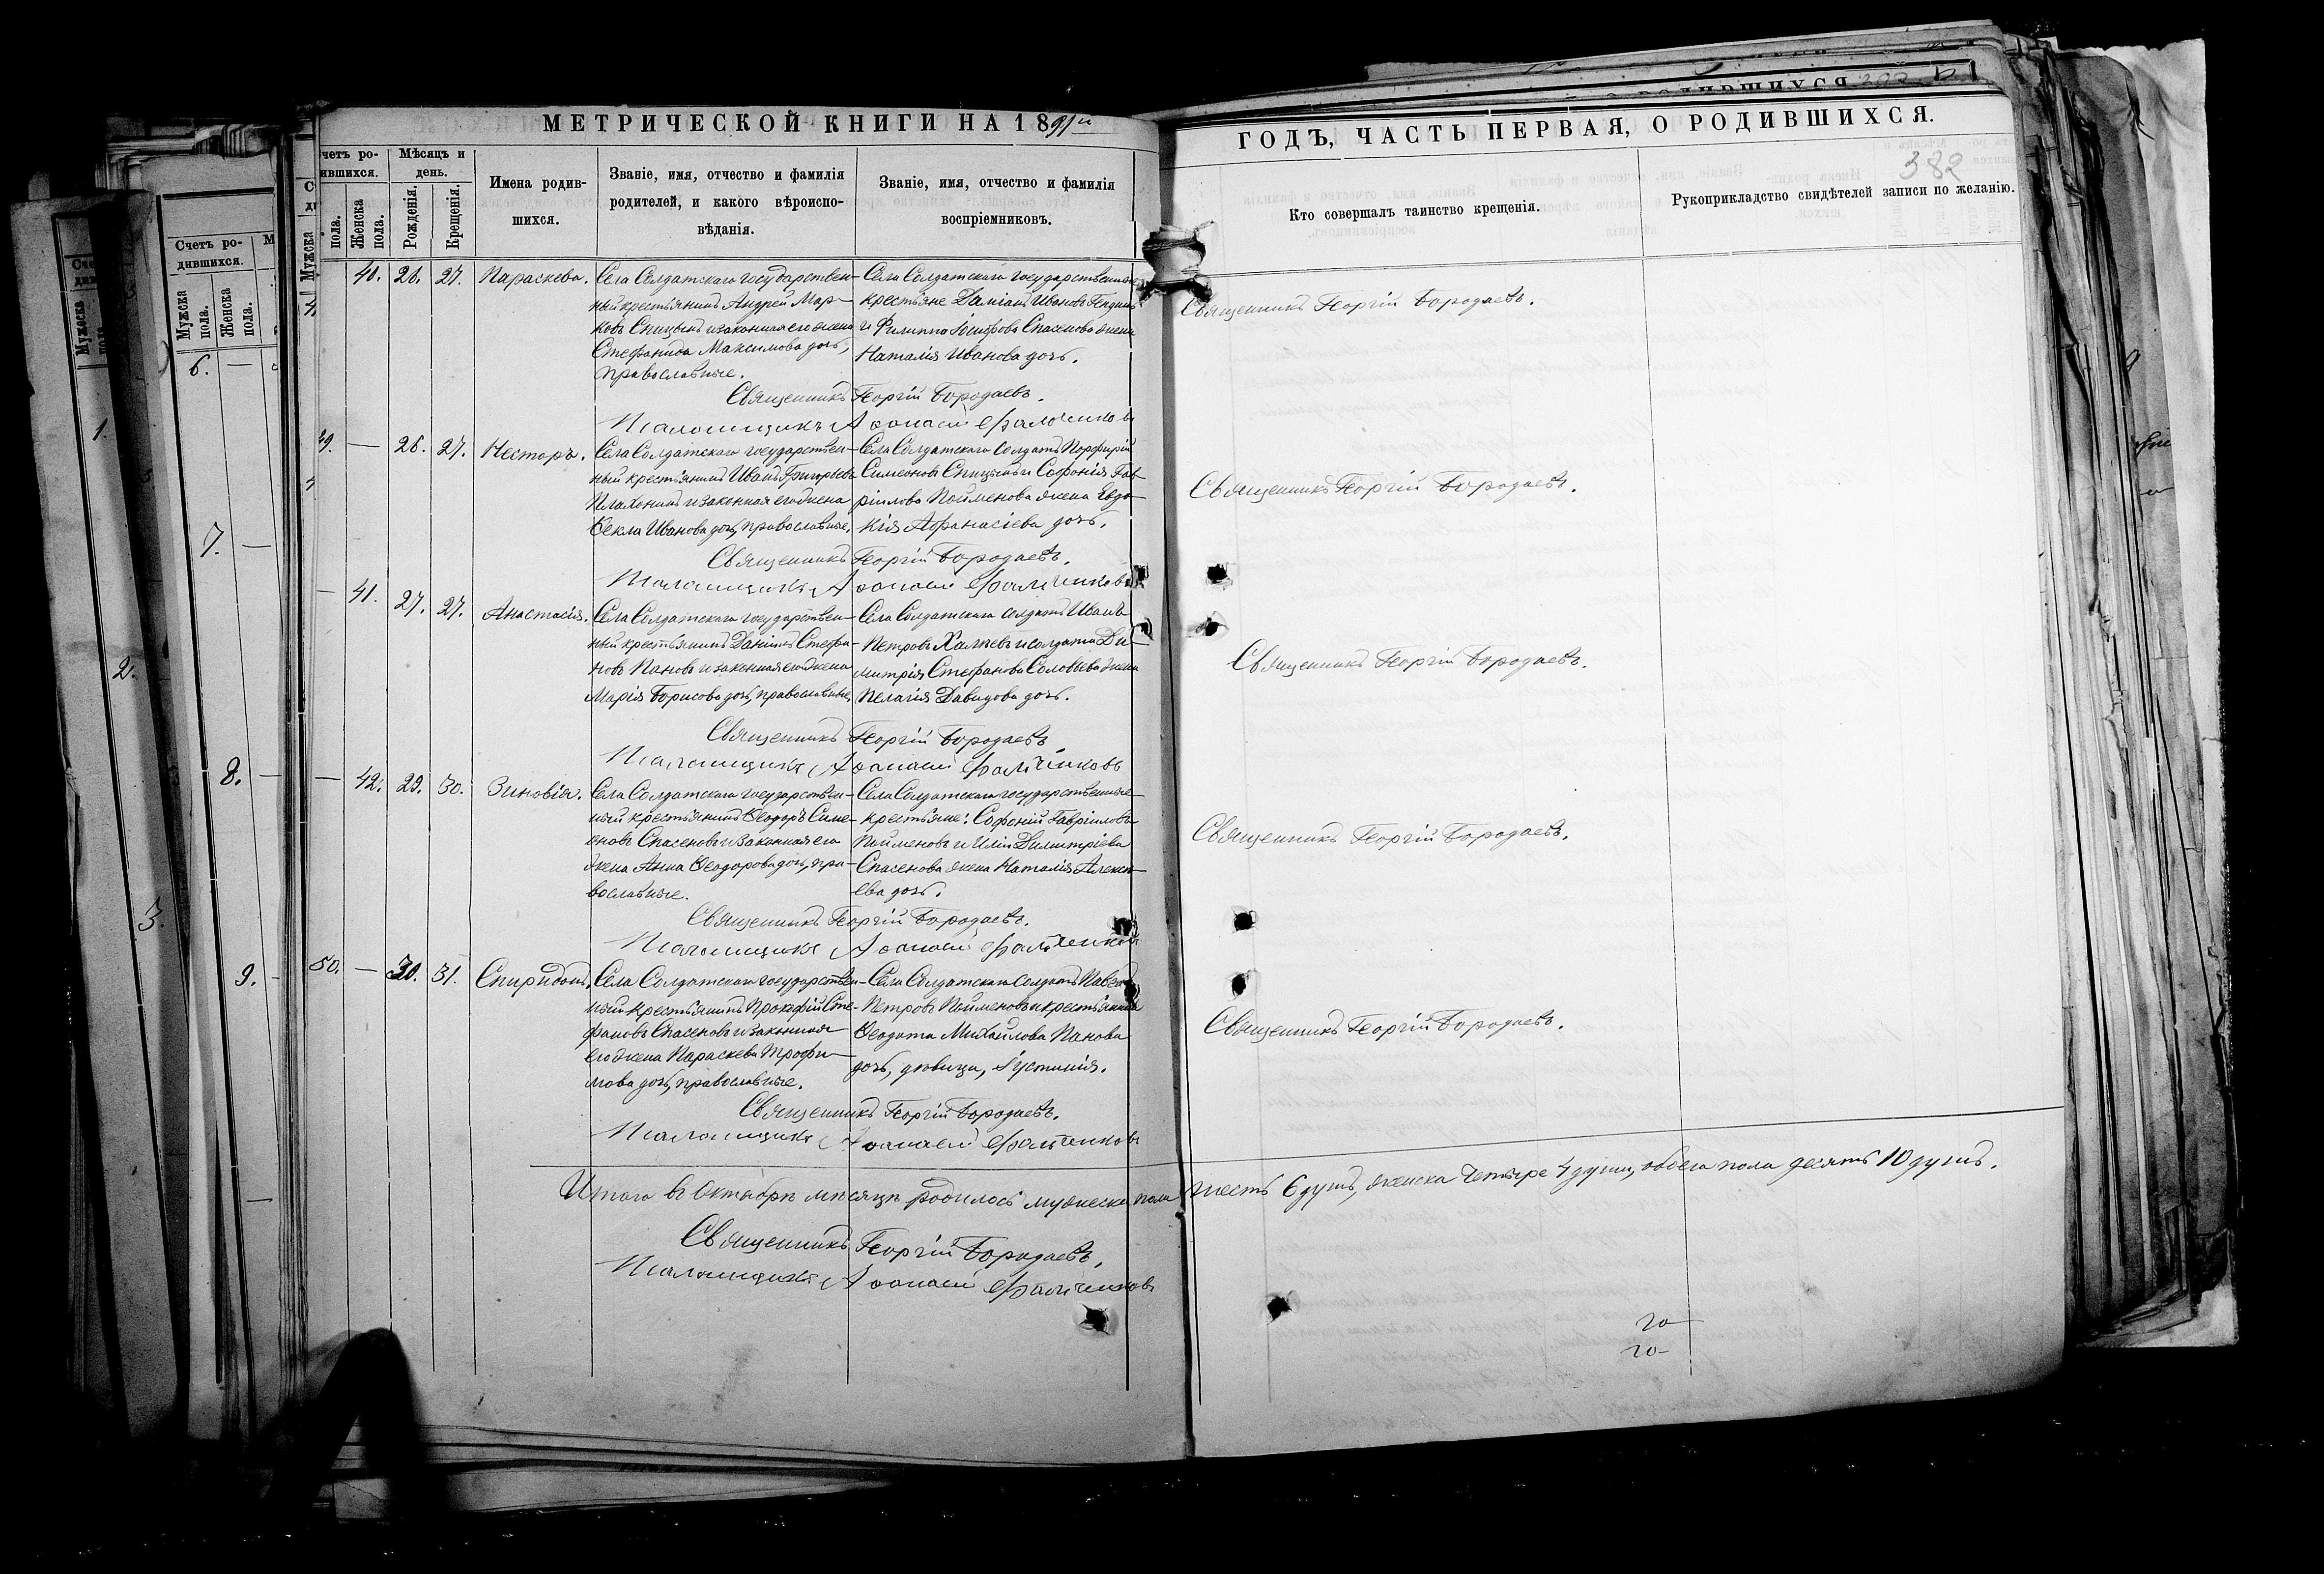 МЕТРИЧЕСКОЙ КНИГИ НА 1891й
ГОДЪ, ЧАСТЬ ПЕРВАЯ, О РОДИВШИХСЯ.
382
Счетъ ро-
дившихся.
Мужска
пола.
Женска
пола.
четъ ро-
ившихся.
Мужска
пола.
Женска
пола.
Мѣсяцъ и
день.
Рожденія.
Крещенія.
Имена родив-
шихся.
Званіе, имя, отчество и фамилія
родителей, и какого вѣроиспо-
вѣданія.
Званіе, имя, отчество и фамилія
воспріемниковъ.
Кто совершалъ таинство крещенія.
Рукоприкладство свидѣтелей записи по желанію.
1.
2.
3.
6. —
7. —
8. —
9. —
40. 26. 27. Параскева.
Села Солдатскаго государствен-
ный крестьянинъ Андрей Мар-
ковъ Спицынъ и законная его жена
Стефанида Максимова дочь,
православные.
Села Солдатскаго государственные
крестьяне Даміанъ Ивановъ
и Филиппа Спасенова жена
Наталія Иванова дочь.
Священникъ Георгій Бородаевъ.
Священникъ Георгій Бородаевъ.
Псаломщикъ Аѳанасій
49. — 26. 27. Несторъ.
Села Солдатскаго государствен-
ный крестьянинъ Иванъ Григорьевъ
и законная его жена
Ѳекла Иванова дочь, православные.
Села Солдатскаго солдатъ Порфирій
Симеоновъ Спицынъ и Софонія Гав-
ріилова Пойменова жена Евдо-
кія Афанасіева дочь.
Священникъ Георгій Бородаевъ.
Священникъ Георгій Бородаевъ.
Псаломщикъ Аѳанасій
— 41. 27. 27. Анастасія.
Села Солдатскаго государствен-
ный крестьянинъ Даніилъ Стефа-
новъ Пановъ и законная его жена
Марія Борисова дочь, православные.
Села Солдатскаго солдатъ Иванъ
Петровъ и солдата Ди-
митрія Стефанова Соловьева жена
Пелагія Давидова дочь.
Священникъ Георгій Бородаевъ.
Священникъ Георгій Бородаевъ.
Псаломщикъ Аѳанасій
— 42. 29. 30. Зиновія.
Села Солдатскаго государствен-
ный крестьянинъ Ѳеодоръ Симе-
оновъ Спасеновъ и законная его
жена Анна Ѳеодорова дочь, пра-
вославные.
Села Солдатскаго государственные
крестьяне: Софоній Гавріиловъ
Пойменовъ и Иліи Димитріева
Спасенова жена Наталія Алексѣ-
ева дочь.
Священникъ Георгій Бородаевъ.
Священникъ Георгій Бородаевъ.
Псаломщикъ Аѳанасій
50. — 30. 31. Спиридонъ.
Села Солдатскаго государствен-
ный крестьянинъ Прокофій Сте-
фановъ Спасеновъ и законная
его жена Параскева Трофи-
мова дочь, православные.
Села Солдатскаго солдатъ Павелъ
Петровъ Пойменовъ и крестьянина
Ѳеодота Михаилова Панова
дочь, дѣвица, Іустинія.
Священникъ Георгій Бородаевъ.
Священникъ Георгій Бородаевъ.
Псаломщикъ Аѳанасій
Итого въ Октябрѣ мѣсяцѣ родилось мужеска пола шесть 6 душъ, женска четыре 4 души, обоего пола десять 10 душъ.
Священникъ Георгій Бородаевъ.
Псаломщикъ Аѳанасій